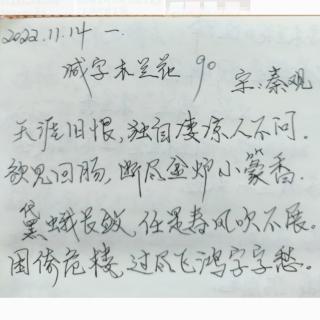 2022.11.14 一.
减字木兰花 90
宋:秦观
天涯旧恨,独自凄凉人不问.
欲见回肠,断尽金炉小篆香.
黛蛾长敛,任是春风吹不展.
困倚危楼,过尽飞鸿字字愁.